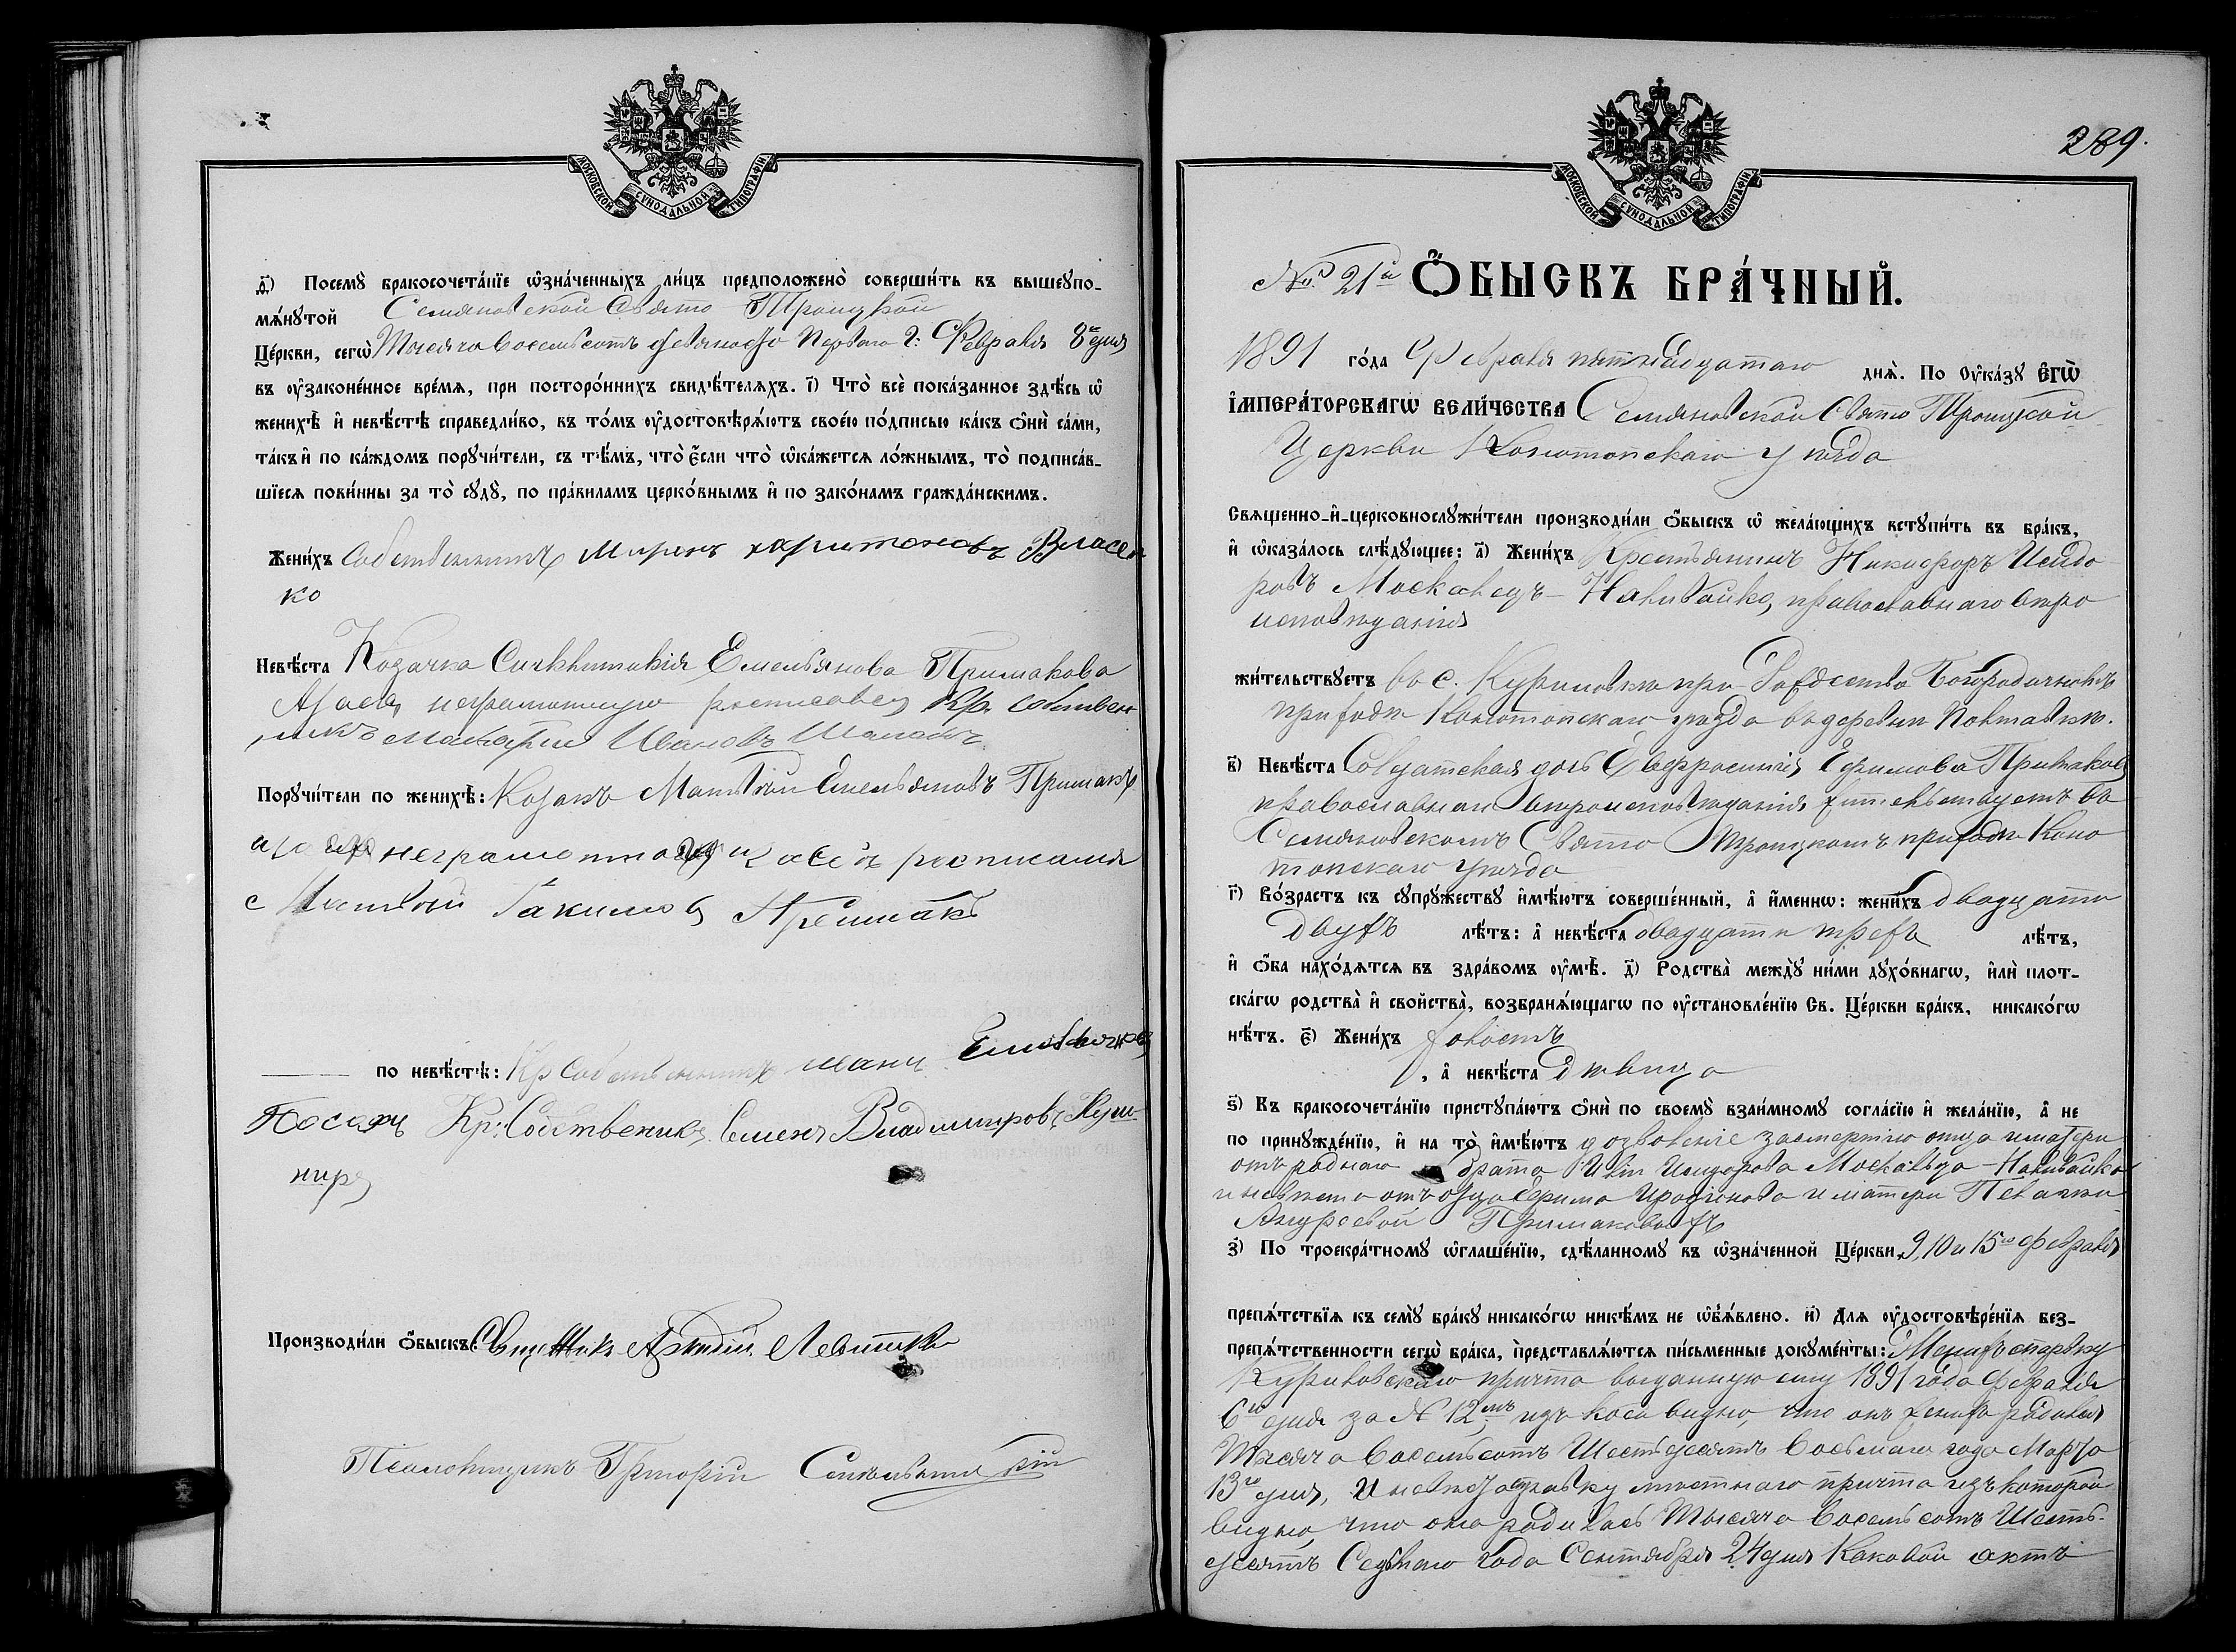 МОСКОВСКОЙ СѴНОДАЛЬНОЙ ТИПОГРАФІИ
д҃) Посемꙋ̀ бракосочета́нїе ѡ҆зна́ченныхъ ли́цъ предположено̀ соверши́ть въ вышеꙋпо-
мѧ́нꙋтой Семяновской Свято Троицкой
Це́ркви, сегѡ̀ Тысяча восемьсотъ девяносто Перваго г: Февраля 8го дня
въ ᲂу҆законе́нное вре́мѧ, при посторо́ннихъ свидѣ́телѧхъ. і҃) Что̀ всѐ пока́занное здѣ́сь ѡ҆
женихѣ̀ и҆ невѣ́стѣ справедли́во, въ то́мъ ᲂу҆достовѣрѧ́ютъ свое́ю по́дписью ка́къ ѻ҆нѝ са́ми,
та́къ и҆ по ка́ждомъ порꙋчи́тели, съ тѣ́мъ, что̀ є҆́сли что̀ ѡ҆ка́жетсѧ ло́жнымъ, то̀ подписа́в-
шїесѧ пови́нны за то̀ сꙋдꙋ̀, по пра́виламъ церко́внымъ и҆ по зако́намъ гражда́нскимъ.
Жени́хъ Собственникъ Миронъ харитоновъ Власен
ко
Невѣ́ста Козачка Емельянова Примакова
а за ея неграмотную росписався Кр. собствен
никъ Ивановъ
Порꙋчи́тели по женихѣ̀: Козакъ Матвѣй Емельяновъ Примакъ
а за его неграмотнаго росписался
Матвѣй Якимовъ
по невѣ́стѣ: Кр Собственникъ
Кр: Собственикъ Семенъ Владимировъ Куш-
ниръ
Производи́ли ѻ҆́быскъ: Священникъ Аркадій Левитскій
Псаломщикъ Григорій
289.
МОСКОВСКОЙ СѴНОДАЛЬНОЙ ТИПОГРАФІИ
№ 21й Ѻ҆́БЫСКЪ БРА́ЧНЫЙ.
1891 го́да Февраля пятнадцатаго днѧ̀. По Оу҆ка́зꙋ Є҆гѡ̀
І҆мпера́торскагѡ Вели́чества Семяновской Свято Троицкой
Церкви Конотопскаго уѣзда
Свѧщенно-и҆-церковнослꙋжи́тели производи́ли ѻ҆́быскъ ѡ҆ жела́ющихъ встꙋпи́ть въ бра́къ,
и҆ ѡ҆каза́лось слѣ́дꙋющее: а҃) Жени́хъ Крестьянинъ Никифоръ Исидо
ровъ Москалецъ - Наливайко, православнаго вѣро
исповѣданія
жи́тельствꙋетъ въ с. Куриловкѣ при Рождество Богородичномъ
приходѣ Конотопскаго уѣзда въ деревни
в҃) Невѣ́ста Солдатская дочь Евфросинія Ефимова Примакова
православнаго вѣроисповѣданія жительствуетъ въ
Семяновскомъ Свято Троицкомъ приходѣ Коно
топскаго уѣзда
г҃) Во́зрастъ къ сꙋпрꙋ́жествꙋ и҆мѣ́ютъ соверше́нный, а҆ и҆́меннѡ: жени́хъ двадцати
двухъ лѣ́тъ: а҆ невѣ́ста двадцати трехъ лѣ́тъ,
и҆ ѻ҆́ба нахо́дѧтсѧ въ здра́вомъ ᲂу҆мѣ̀. д҃) Родства̀ междꙋ̀ ни́ми дꙋхо́внагѡ, и҆лѝ плот-
ска́гѡ родства̀ и҆ свойства̀, возбранѧ́ющагѡ по ᲂу҆становле́нїю Св. Це́ркви бра́къ, никако́гѡ
нѣ́тъ. є҃) Жени́хъ холостъ
, а҆ невѣ́ста дѣвица
ѕ҃) Къ бракосочета́нїю пристꙋпа́ютъ ѻ҆нѝ по своемꙋ̀ взаи́мномꙋ согла́сїю и҆ жела́нїю, а҆ не
по принꙋжде́нїю, и҆ на то̀ и҆мѣ́ютъ дозволеніе засмертію отца и матери
отъ роднаго брата Исидорова Москальца - Наливайка
и невѣста отъ отца Ефима Иродіонова и матери Пелагіи
Андреевой Примаковыхъ
з҃) По троекра́тномꙋ ѡ҆глаше́нїю, сдѣ́ланномꙋ въ ѡ҆зна́ченной Це́ркви 9, 10 и 15го Февраля
препѧ́тствїѧ къ семꙋ̀ бра́кꙋ никако́гѡ никѣ́мъ не ѡ҆бъѧ́влено. и҃) Для ᲂу҆достовѣре́нїѧ без-
препѧ́тственности сегѡ̀ бра́ка, представлѧ́ютсѧ пи́сьменные докꙋме́нты: Женихъ справку
Куриловскаго причта выданную ему 1891 года Февраля
6го дня за № 12мъ, изъ коей видно, что онъ женихъ родился
Тысяча восемьсотъ Шестьдесятъ Восьмаго года Марта
13го дня, И невѣста справку мѣстнаго причта изъ которой
видно, что она родилась Тысяча восемьсотъ Шесть-
десятъ Седьмаго года Сентября 24 дня Каковой актъ